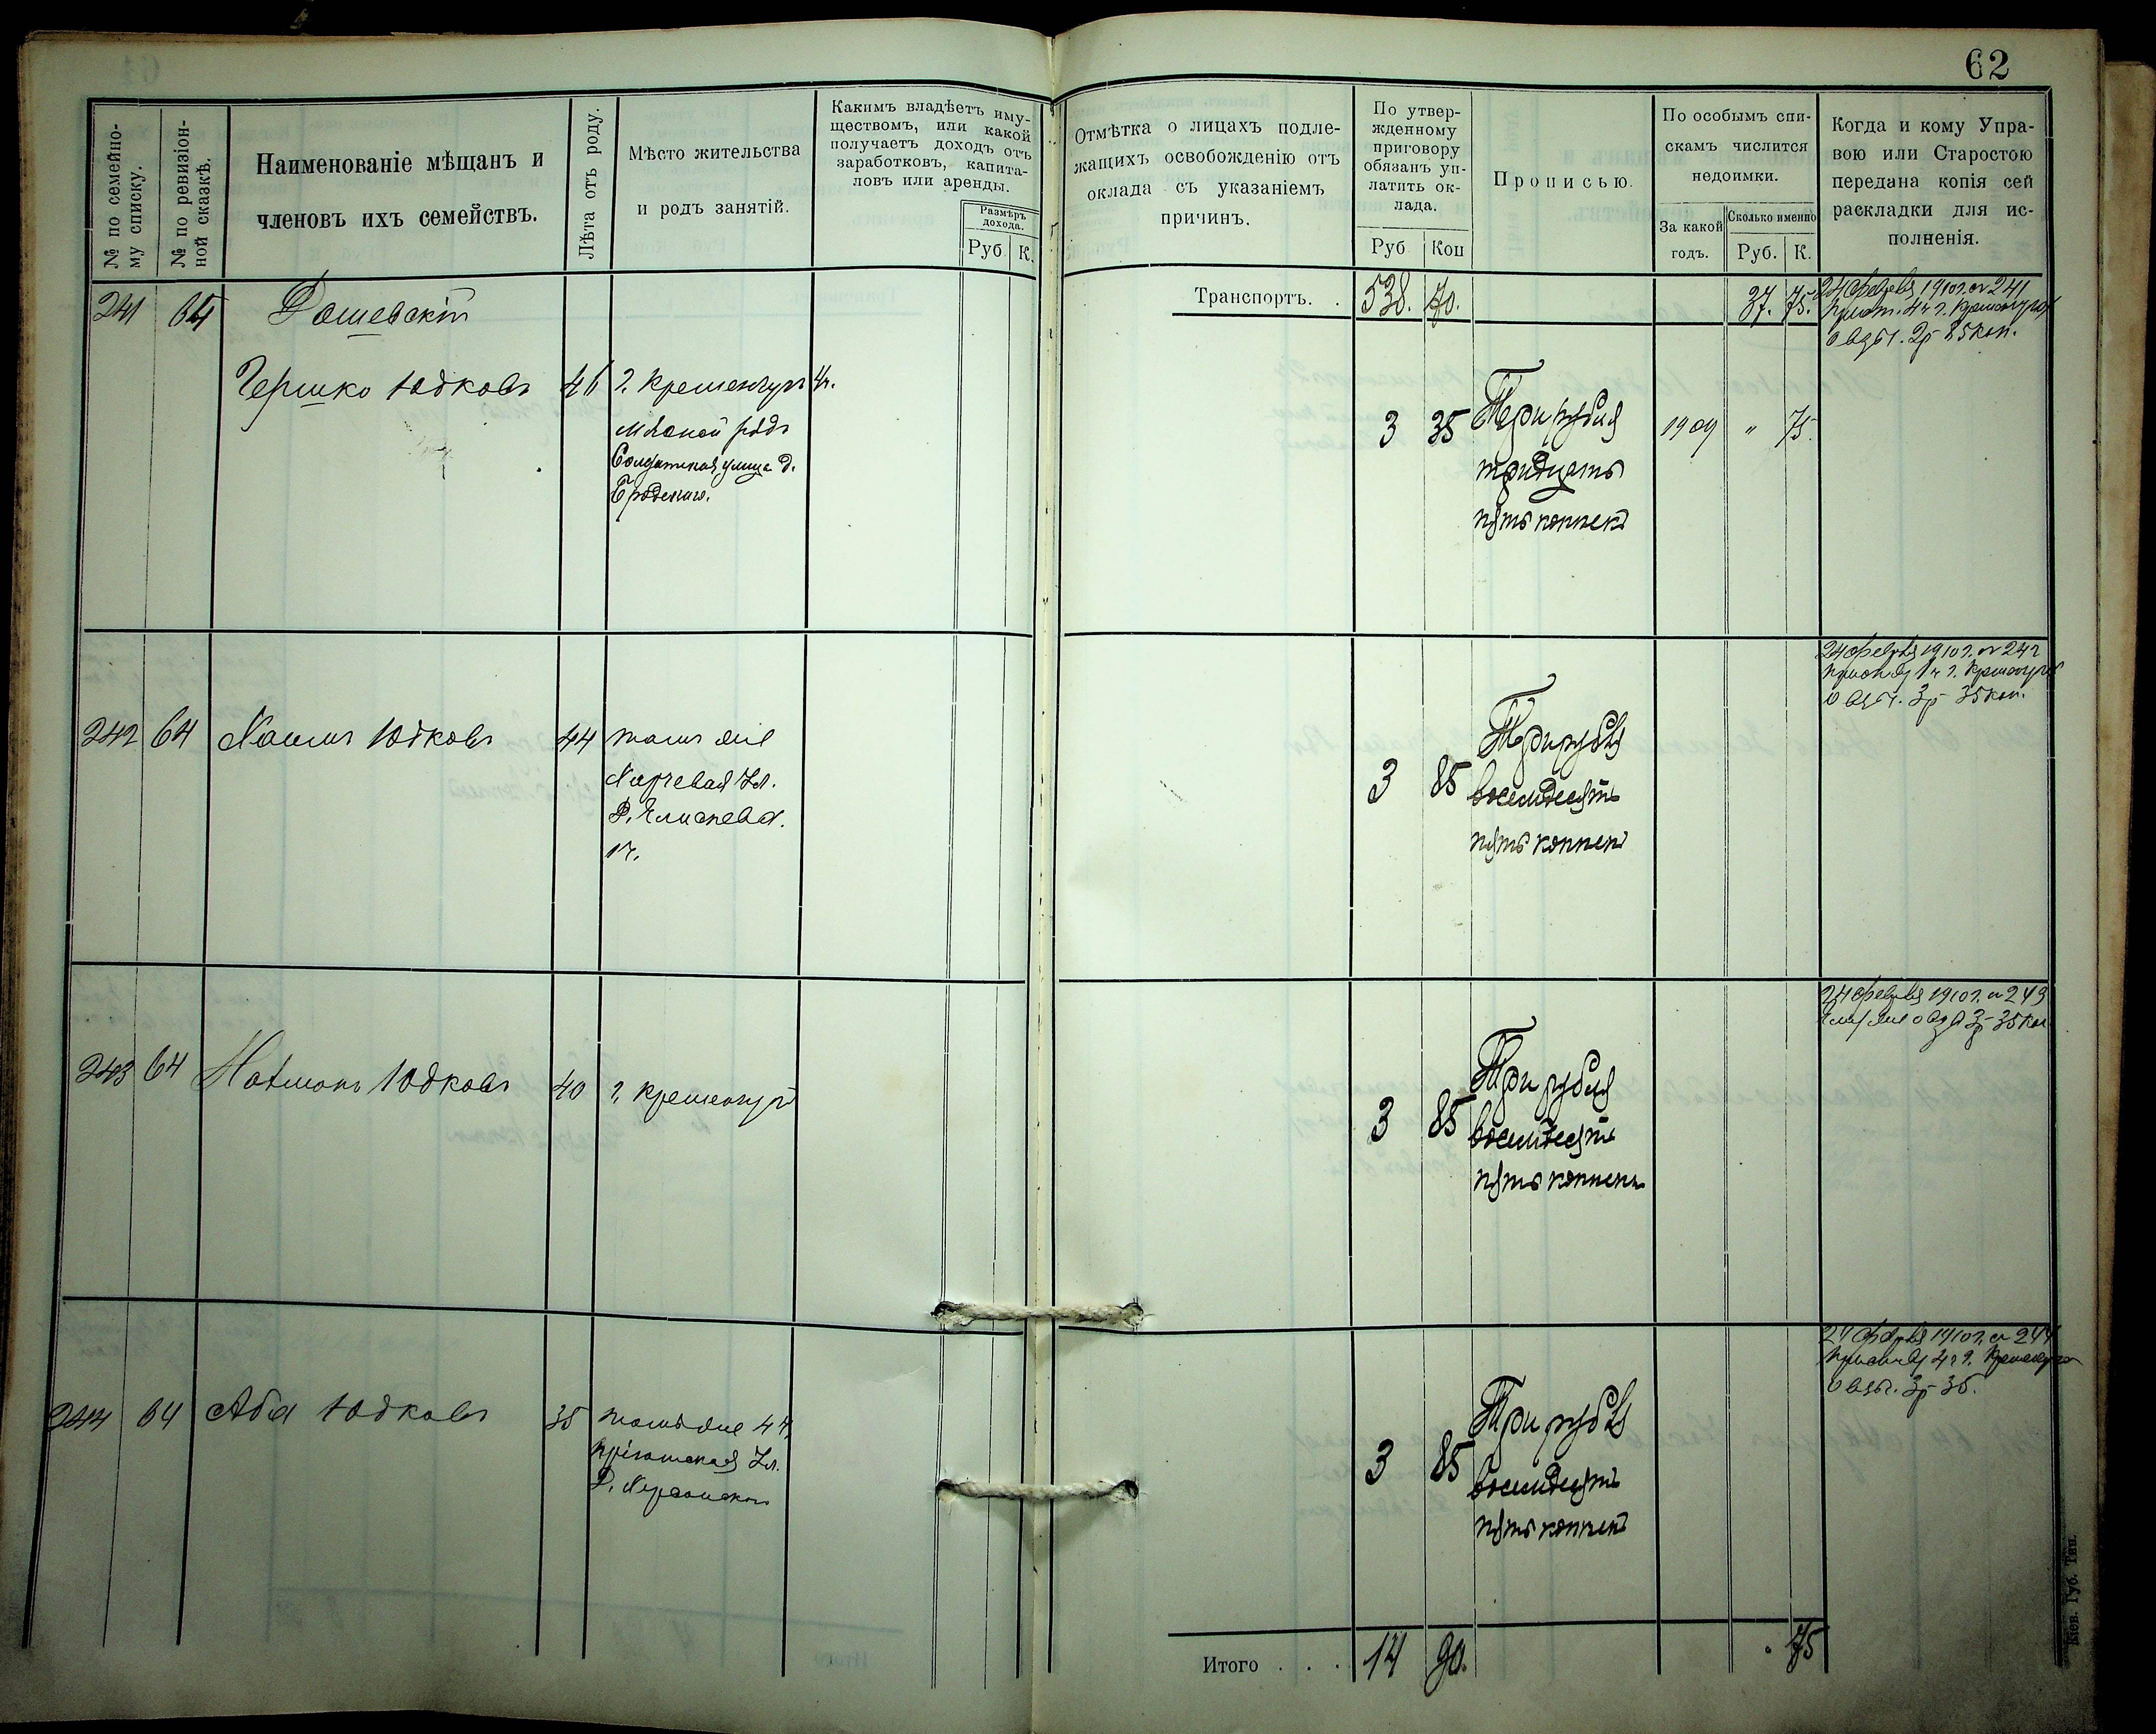 62
№ по семейно-
му списку.
№ по ревизіон-
ной сказкѣ.
Наименованіе мѣщанъ и
членовъ ихъ семействъ.
Лѣта отъ роду.
Мѣсто жительства
и родъ занятій.
Какимъ владѣетъ иму-
ществомъ, или какой
получаетъ доходъ отъ
заработковъ, капита-
ловъ или аренды.
Размѣръ
дохода.
Руб. К.
Отмѣтка о лицахъ подле-
жащихъ освобожденію отъ
оклада съ указаніемъ
причинъ.
По утвер-
жденному
приговору
обязанъ уп-
латить ок-
лада.
Руб Коп
Прописью.
По особымъ спи-
скамъ числится
недоимки.
За какой
годъ.
Сколько именно
Руб. К.
Когда и кому Упра-
вою или Старостою
передана копія сей
раскладки для ис-
полненія.
Транспортъ. . 538. 70. 37. 75.
241 64 Дашевскій
Гершко Юдковъ 46 г. Кременчугъ 4ч.
мясной рядъ
Солдатская улица д.
Бродскаго.
3 35 Три рубля
тридцать
пять копѣекъ
1909 " 75.
24 февраля 1910 г. № 241
Прист. 4 ч г. Кременчуга
о взыс. 2р 85 коп.
242 64 Хаимъ Юдковъ 44 тамъ же
Харчевая Ул.
Д.
1ч.
3 85 Три рубля
восемдесятъ
пять копѣекъ
24 февраля 1910 г. № 242
Приставу 1 ч г. Кременчуга
о взыс. 3р 35 коп.
243 64 Нахманъ Юдковъ 40 г. Кременчугъ
3 85 Три рубля
восемдесятъ
пять копѣекъ
24 февраля 1910 г. № 243
о 3р 35 коп
244 64 Аба Юдковъ 35 тамъ же 4 ч.
Ул.
Д. Херсонскаго
3 85 Три рубля
восемдесятъ
пять копѣекъ
24 февраля 1910 г. № 244
Приставу 4 ч г. Кременчуга
о взыс. 3р 35.
Итого . . . 14 90. 75
Кіев. Губ. Тип.